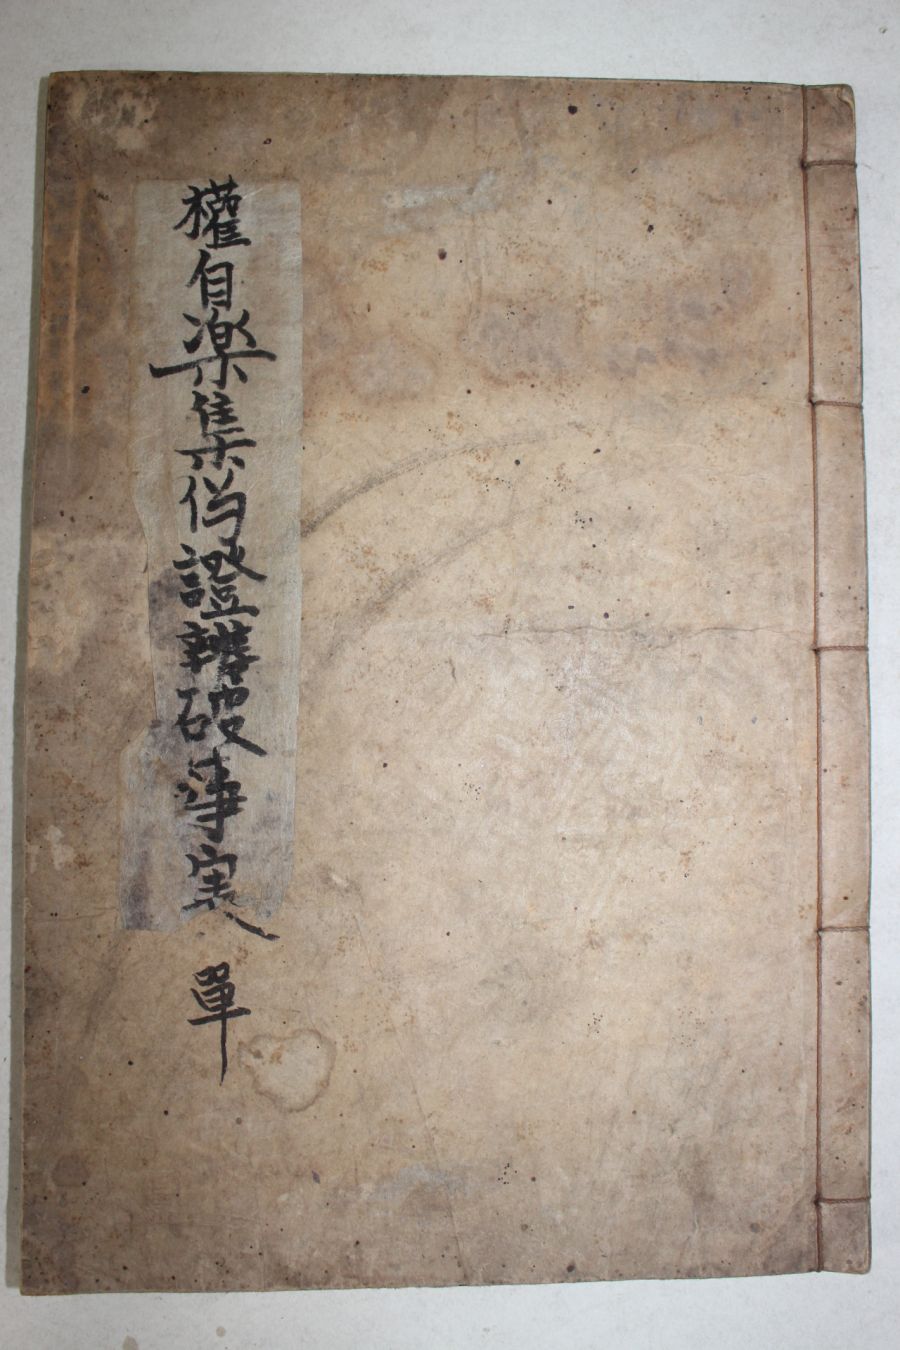 權自楽集伪證辨破事実 單